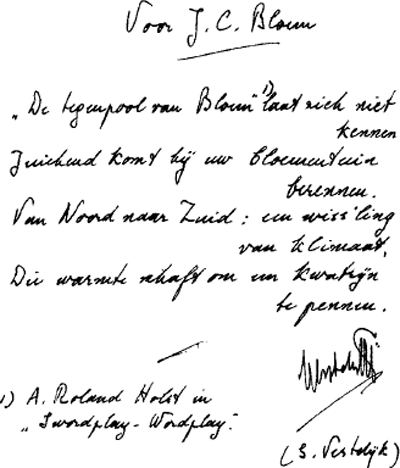 Voor J. C. Bloem
„De tegenpool van Bloem" 1) laat zich niet
kennen
Juichend komt hij uw bloementuin
berennen.
Van Noord naar Zuid: een wiss'ling
van klimaat,
Die warmte schaft om een kwatrijn
te pennen.
1) A. Roland Holst in
„Swordplay - Wordplay".
(S. Vestdijk)